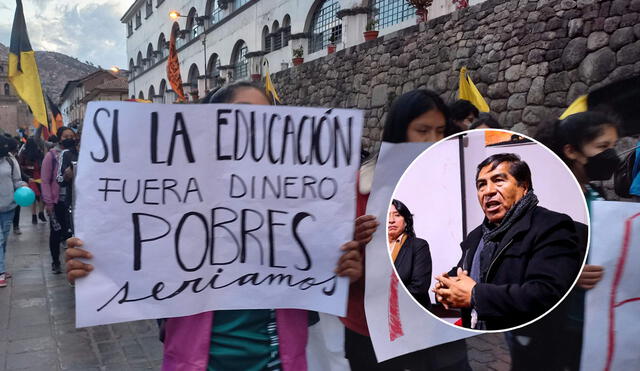 SI LA EDUCACIÓN
FUERA DINERO
POBRES
seríamos